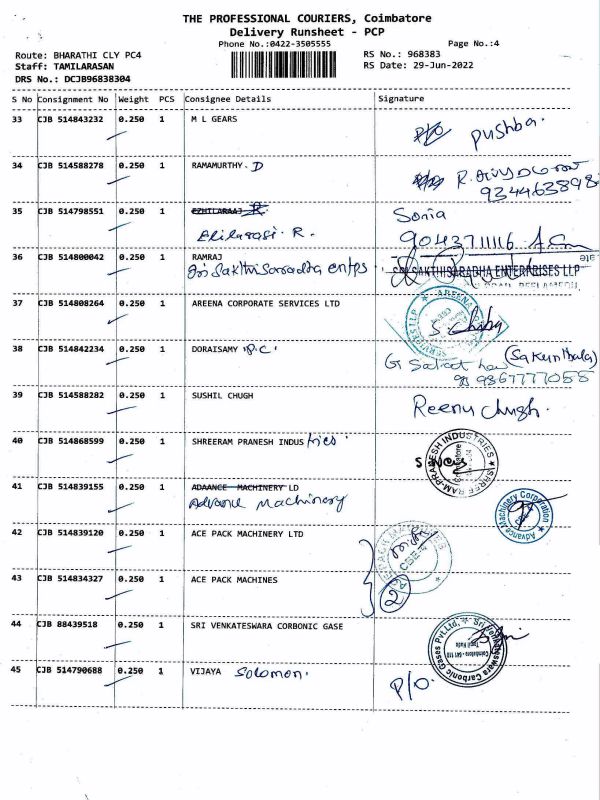 THE PROFESSIONAL COURIERS, Coimbatore
Delivery Runsheet - PCP
Phone No.:0422-3505555
Page No.:4
Route: BHARATHI CLY PC4
RS No.: 968383
Staff: TAMILARASAN
RS Date: 29-Jun-2022
DRS No.: DCJB96838304
S No Consignment No Weight PCS Consignee Details Signature
33 CJB 514843232 0.250 1 M L GEARS P/O Pushba.
34 CJB 514588278 0.250 1 RAMAMURTHY. D
934463898
35 CJB 514798551 0.250 1 EZHILARAAJ R Sonia
Elilarasi. R. 9043711116
36 CJB 514800042 0.250 1 RAMRAJ
Sri Sakthisaradha entps. SRI SAKTHISARADHA ENTERPRISES LLP
37 CJB 514808264 0.250 1 AREENA CORPORATE SERVICES LTD
38 CJB 514842234 0.250 1 DORAISAMY P.C (Sakunthala)
9867777058
39 CJB 514588282 0.250 1 SUSHIL CHUGH Reenu Chugh.
40 CJB 514868599 0.250 1 SHREERAM PRANESH INDUSTries. SHREE RAM-PRANESH INDUSTRIES
41 CJB 514839155 0.250 1 ADAANCE MACHINERY LD
Advance Machinery Advance Machinery Corporation
42 CJB 514839120 0.250 1 ACE PACK MACHINERY LTD
43 CJB 514834327 0.250 1 ACE PACK MACHINES 2
44 CJB 88439518 0.250 1 SRI VENKATESWARA CORBONIC GASE
45 CJB 514790688 0.250 1 VIJAYA Solomon. P/O.